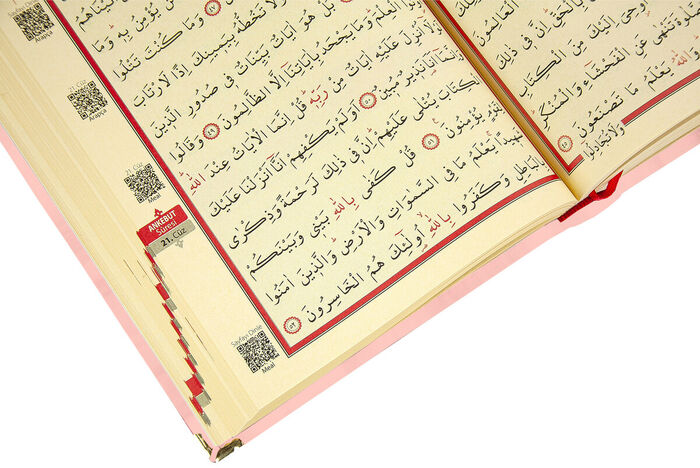 الْعَالِمُونَ
بِالْحَقِّ اِنَّ فٖي ذٰلِكَ
اُوحِيَ اِلَيْكَ مِنَ الْكِتَابِ
تَنْهٰى عَنِ الْفَحْشَاءِ وَالْمُنْكَرِ
اللّٰهُ يَعْلَمُ مَا تَصْنَعُونَ ٤٥
وَلَا تُجَادِلُوا
مَنْ يُؤْمِنُ بِهٖ وَمَا
٤٧ وَمَا كُنْتَ تَتْلُوا
وَلَا تَخُطُّهُ بِيَمٖينِكَ اِذًا لَارْتَابَ
بَلْ هُوَ اٰيَاتٌ بَيِّنَاتٌ فٖي صُدُورِ الَّذٖينَ
الْعِلْمَ وَمَا يَجْحَدُ بِاٰيَاتِنَا اِلَّا الظَّالِمُونَ ٤٩ وَقَالُوا
اُنْزِلَ عَلَيْهِ اٰيَاتٌ مِنْ رَبِّهٖ قُلْ اِنَّمَا الْاٰيَاتُ عِنْدَ اللّٰهِ
وَاِنَّمَا اَنَا نَذٖيرٌ مُبٖينٌ ٥٠ اَوَلَمْ يَكْفِهِمْ اَنَّا اَنْزَلْنَا عَلَيْكَ
الْكِتَابَ يُتْلٰى عَلَيْهِمْ اِنَّ فٖي ذٰلِكَ لَرَحْمَةً وَذِكْرٰى
يُؤْمِنُونَ ٥١ قُلْ كَفٰى بِاللّٰهِ بَيْنٖي وَبَيْنَكُمْ
شَهٖيدًا يَعْلَمُ مَا فِي السَّمٰوَاتِ وَالْاَرْضِ وَالَّذٖينَ اٰمَنُوا
بِالْبَاطِلِ وَكَفَرُوا بِاللّٰهِ اُولٰئِكَ هُمُ الْخَاسِرُونَ ٥٢
Arapça
Cüz
Arapça
Cüz
Meal
ANKEBUT
Sûresi
21. Cüz
Sayfayı Dinle
Meal